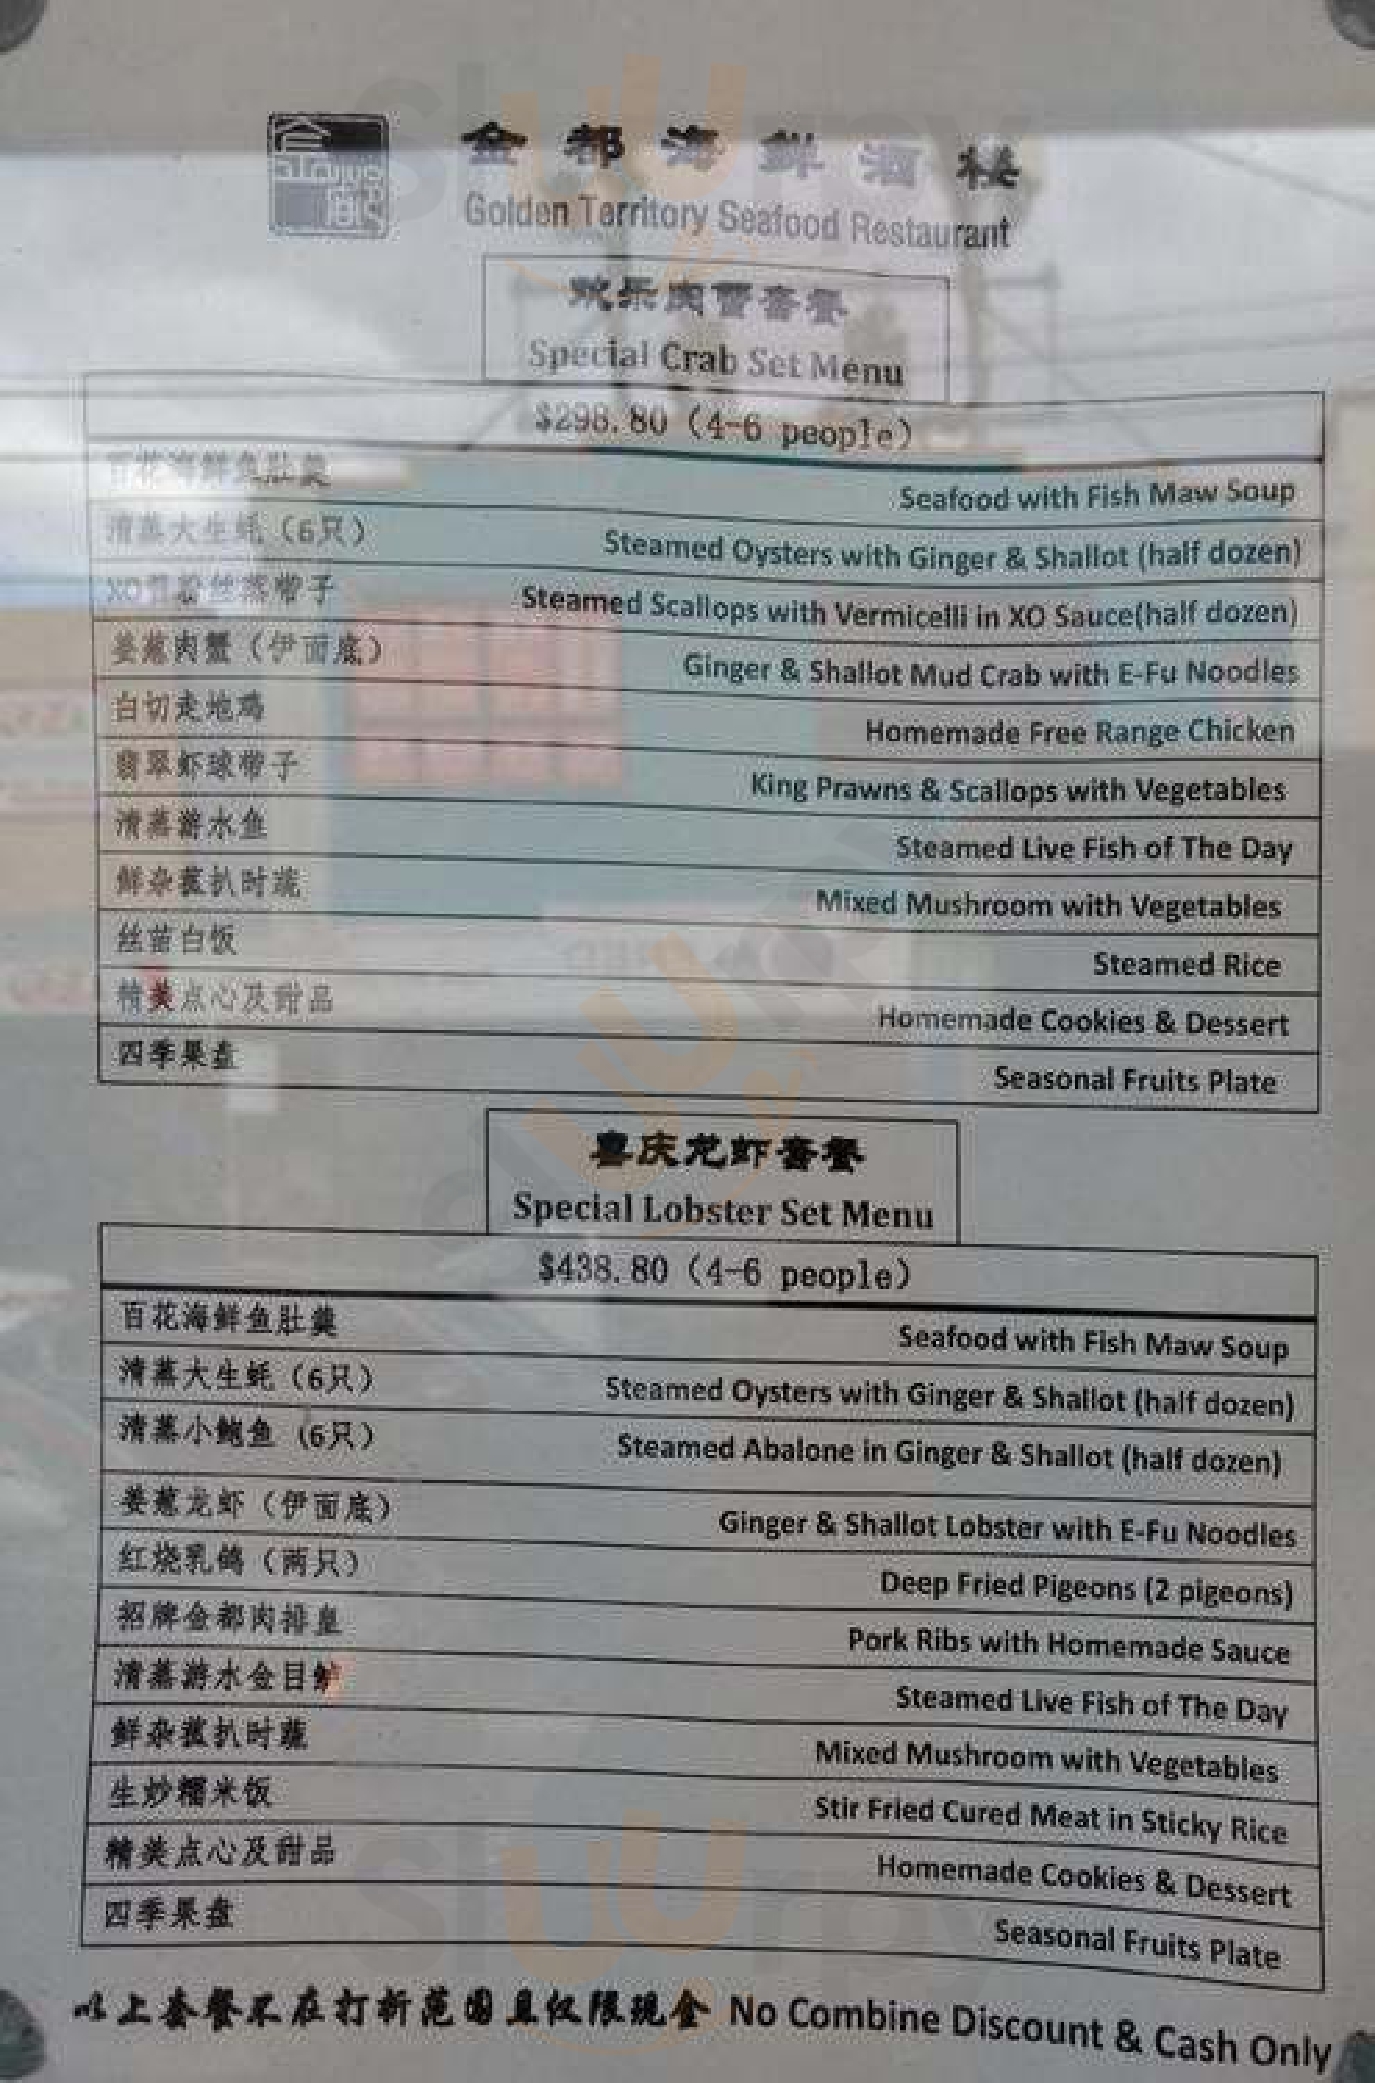 金都海鲜酒楼
Golden Territory Seafood Restaurant
欢乐肉蟹套餐
Special Crab Set Menu
$298.80 (4-6 people)
百花海鲜鱼肚羹 Seafood with Fish Maw Soup
清蒸大生蚝（6只） Steamed Oysters with Ginger & Shallot (half dozen)
XO酱粉丝蒸带子 Steamed Scallops with Vermicelli in XO Sauce(half dozen)
姜葱肉蟹（伊面底） Ginger & Shallot Mud Crab with E-Fu Noodles
白切走地鸡 Homemade Free Range Chicken
翡翠虾球带子 King Prawns & Scallops with Vegetables
清蒸游水鱼 Steamed Live Fish of The Day
鲜杂菰扒时蔬 Mixed Mushroom with Vegetables
丝苗白饭 Steamed Rice
精美点心及甜品 Homemade Cookies & Dessert
四季果盘 Seasonal Fruits Plate
喜庆龙虾套餐
Special Lobster Set Menu
$438.80 (4-6 people)
百花海鲜鱼肚羹 Seafood with Fish Maw Soup
清蒸大生蚝（6只） Steamed Oysters with Ginger & Shallot (half dozen)
清蒸小鲍鱼（6只） Steamed Abalone in Ginger & Shallot (half dozen)
姜葱龙虾（伊面底） Ginger & Shallot Lobster with E-Fu Noodles
红烧乳鸽（两只） Deep Fried Pigeons (2 pigeons)
招牌金都肉排皇 Pork Ribs with Homemade Sauce
清蒸游水金目鲈 Steamed Live Fish of The Day
鲜杂菰扒时蔬 Mixed Mushroom with Vegetables
生炒糯米饭 Stir Fried Cured Meat in Sticky Rice
精美点心及甜品 Homemade Cookies & Dessert
四季果盘 Seasonal Fruits Plate
以上套餐不在打折范围且仅限现金 No Combine Discount & Cash Only